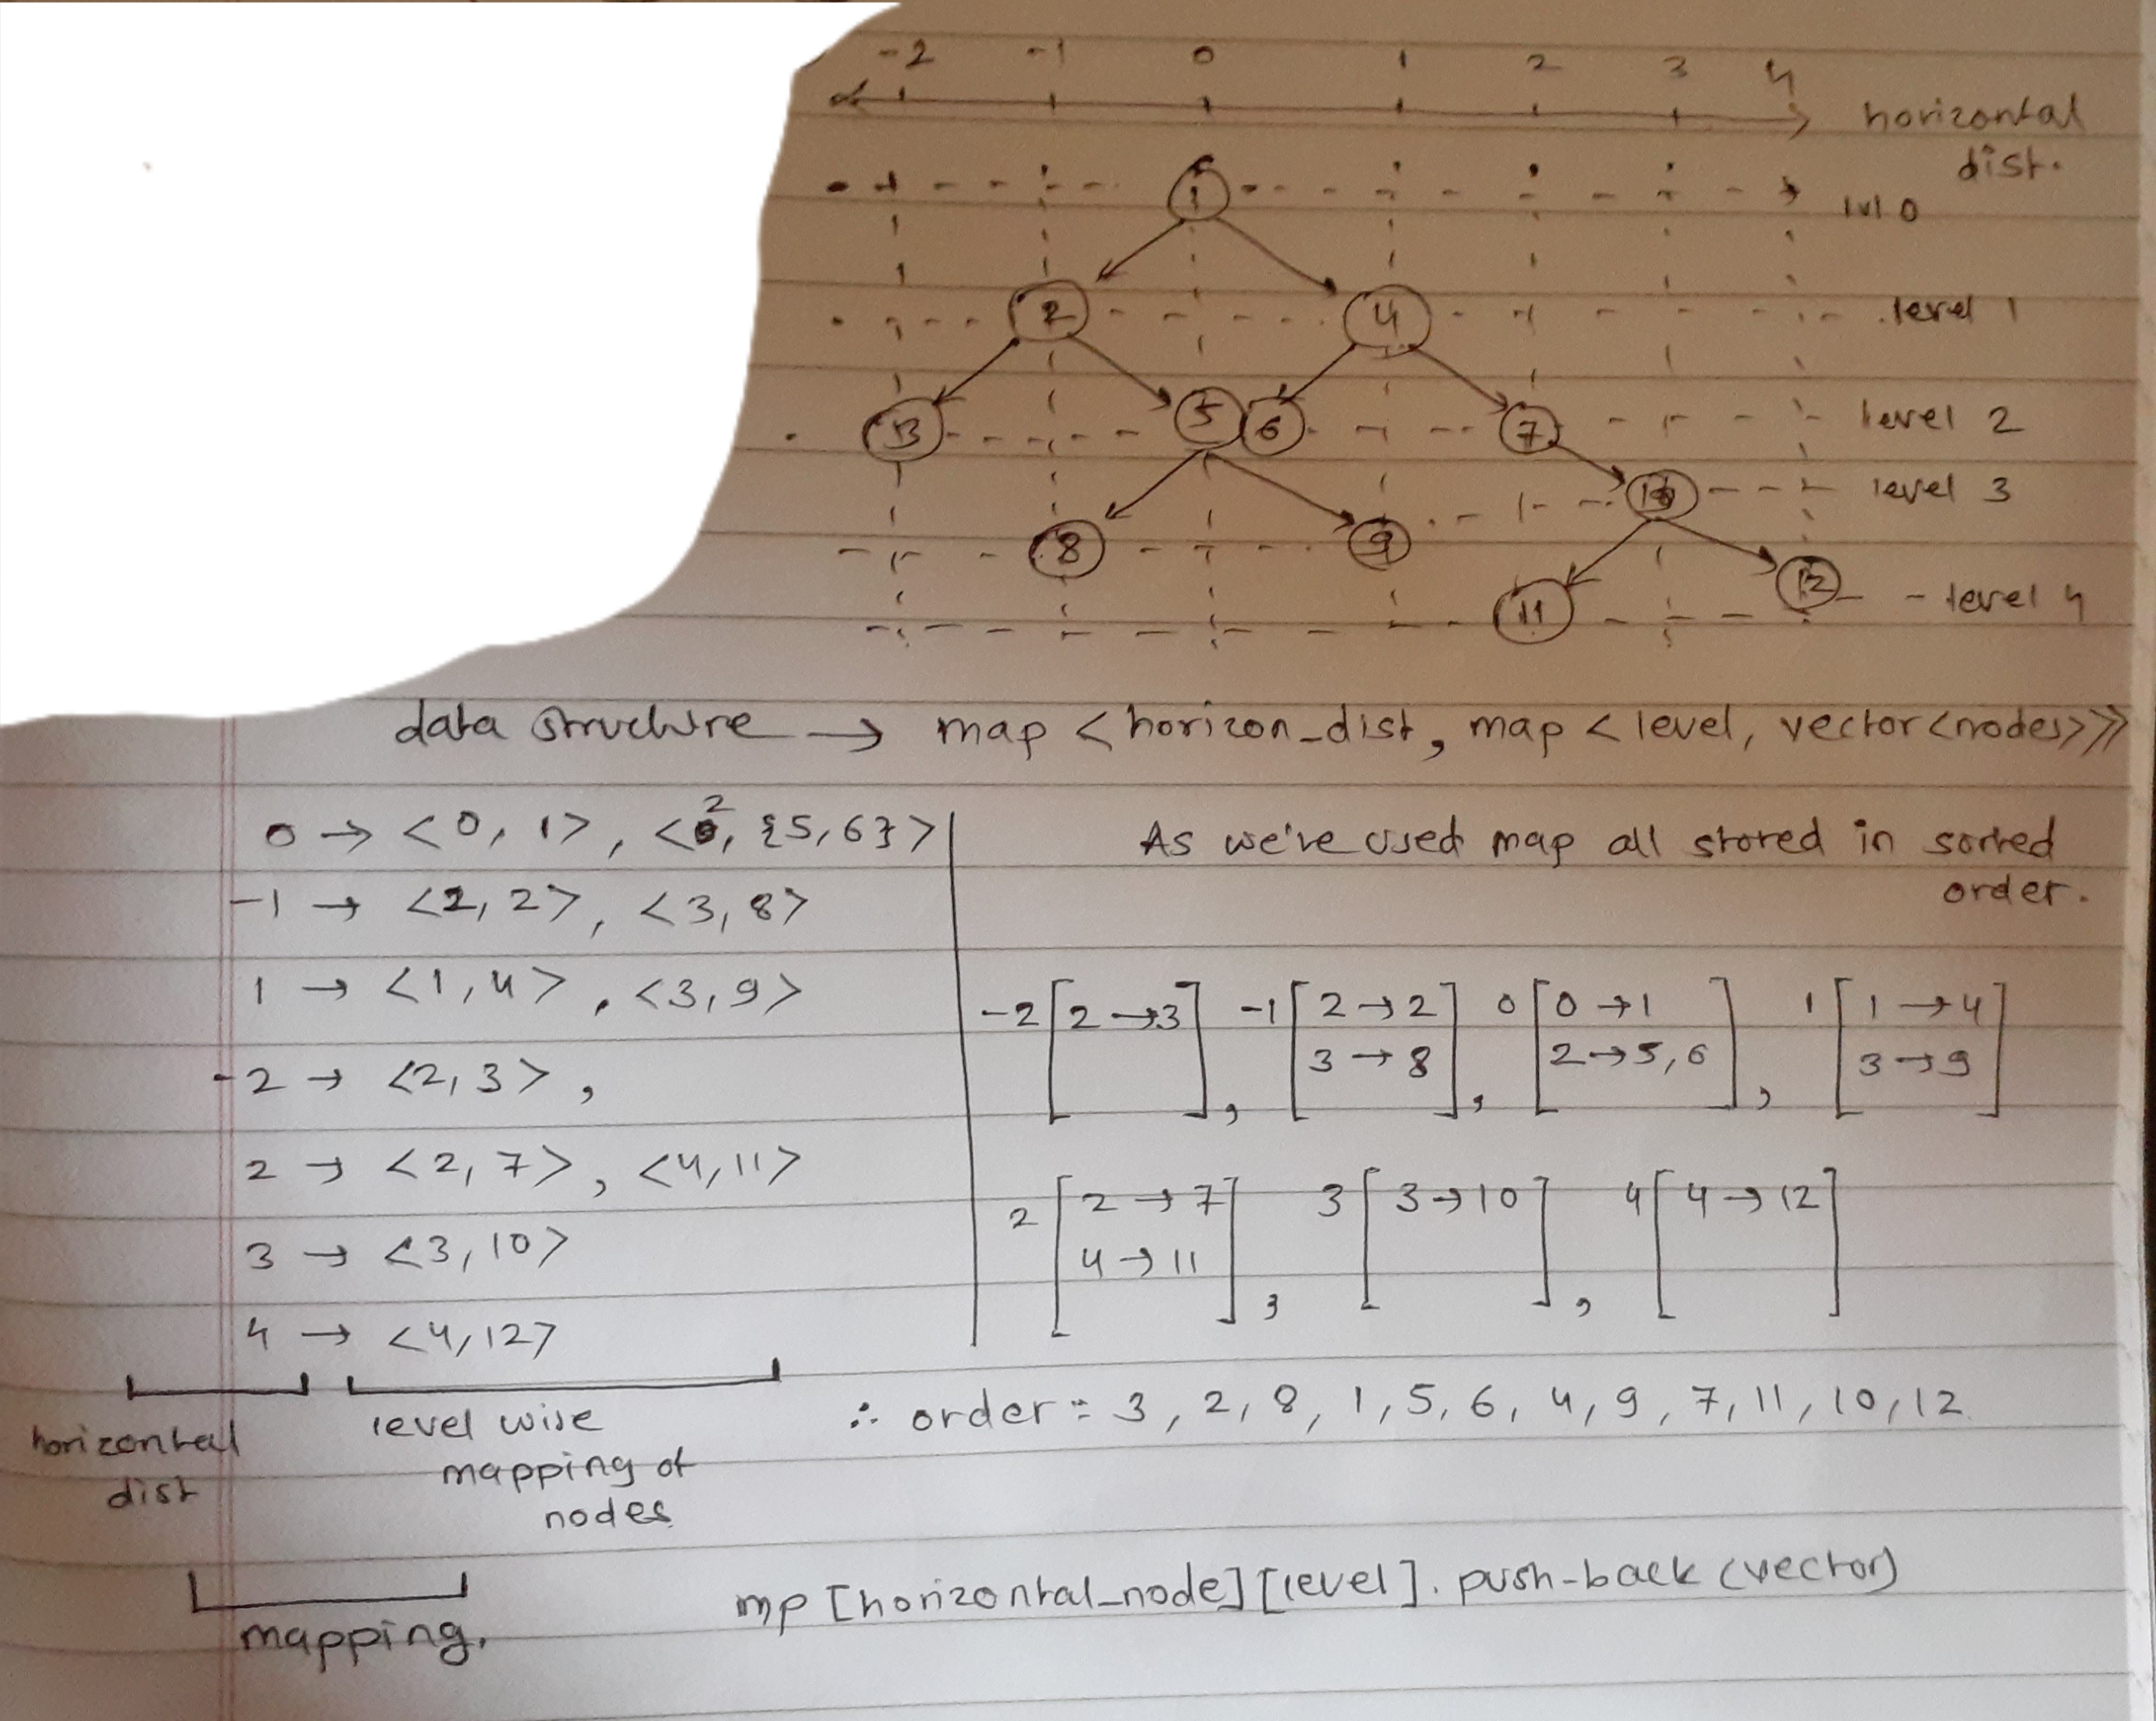 -2 -1 0 1 2 3 4
horizontal
dist.
1
lvl 0
2 4
level 1
3 5 6 7
level 2
10
level 3
8 9
11 12
level 4
data structure → map <horizon_dist, map <level, vector<nodes>>>
0 → <0, 1>, <2, {5,6}>
-1 → <2, 2>, <3, 8>
1 → <1, 4>, <3, 9>
-2 → <2, 3>,
2 → <2, 7>, <4, 11>
3 → <3, 10>
4 → <4, 12>
horizontal
dist
level wise
mapping of
nodes
mapping.
As we've used map all stored in sorted
order.
-2 [2 → 3], -1 [2 → 2 3 → 8], 0 [0 → 1 2 → 5, 6], 1 [1 → 4 3 → 9]
2 [2 → 7 4 → 11], 3 [3 → 10], 4 [4 → 12]
∴ order = 3, 2, 8, 1, 5, 6, 4, 9, 7, 11, 10, 12
mp [horizontal_node][level]. push-back (vector)